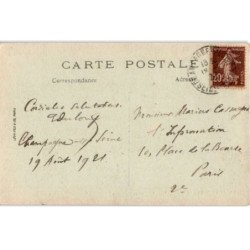 CARTE POSTALE
Correspondance
Adresse
Cordiales salutations
Champagne sur Seine
19 Août 1921
Monsieur Marius
L'Information
10, Place de la Bourse
Paris
2e
20c